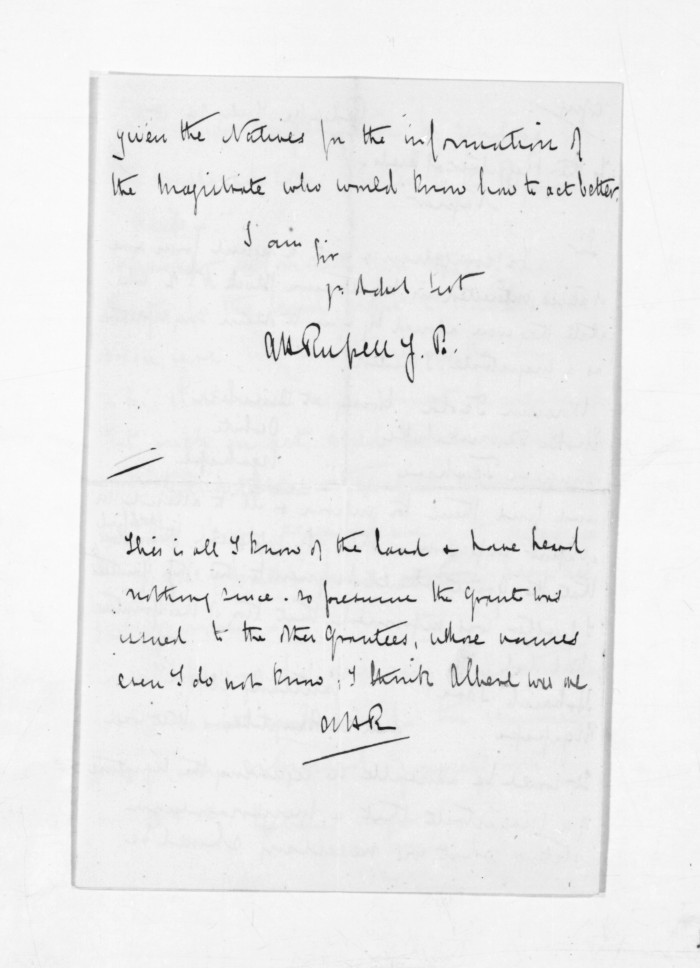 given the Natives for the information of
the Magistrate who would know how to act better.
I am
Sir
yr. obdt Svt
AHRussell J. P.
This is all I know of the land & have heard
nothing since. so presume the grant was
issued to the other Grantees, whose names
even I do not know, I think was one
AHR